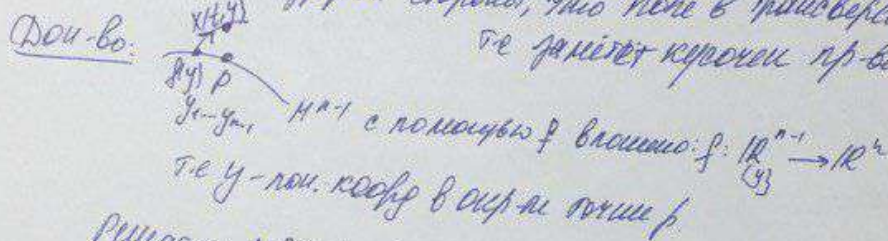 стороны, это поле в трансверса
т.е заметет кусочек пр-ва
Док-во:
x(t,y)
f(y) p
y₁...yₙ₋₁
Mⁿ⁻¹ с помощью f вложено: f: ℝⁿ⁻¹ → ℝⁿ
(y)
т.е y - лок. коорд в окр-ти точки p